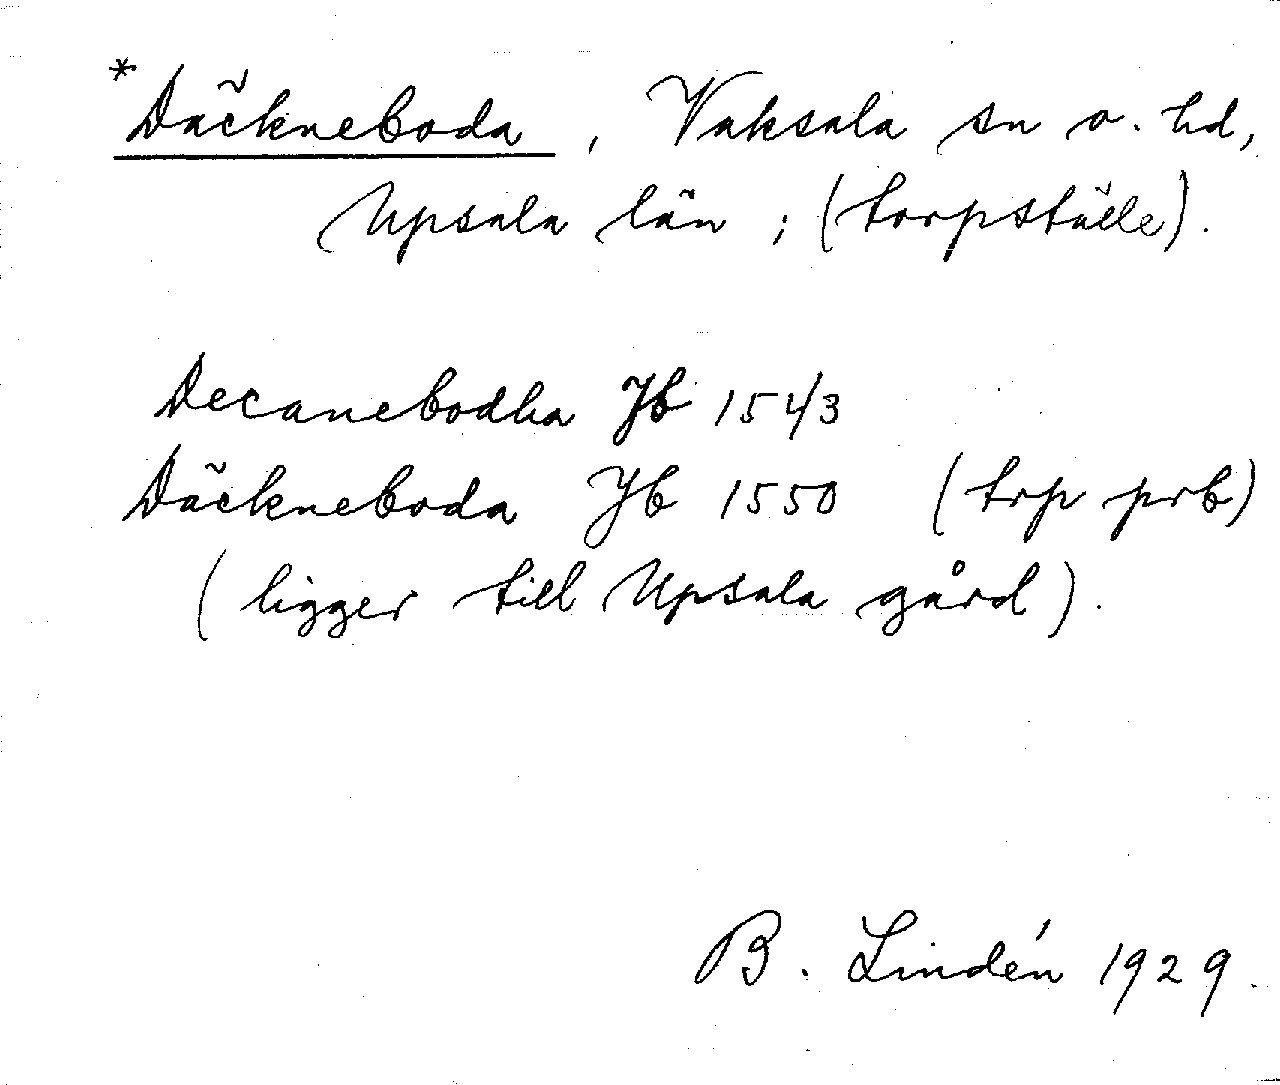 *Däckneboda, Vaksala sn o. hd,
Upsala län; (torpställe).
Decanebodha Jb 1543
Däckneboda Jb 1550 (trp prb)
(ligger till Upsala gård).
B. Lindén 1929.